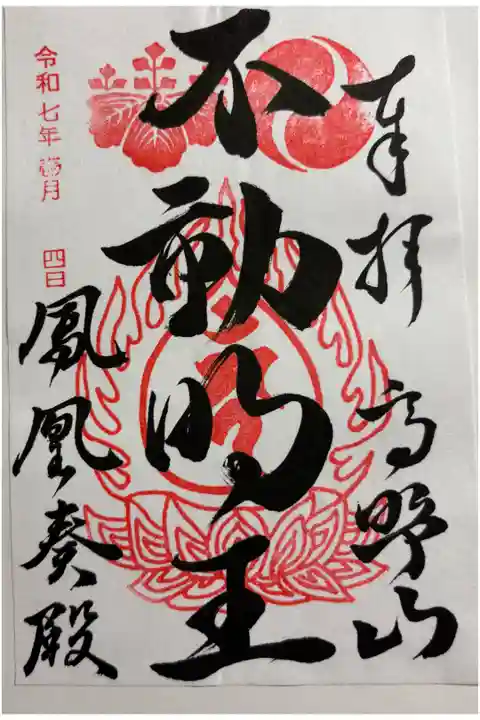 奉拝 高野山
不動明王
鳳凰奏殿
令和七年壹月 四日